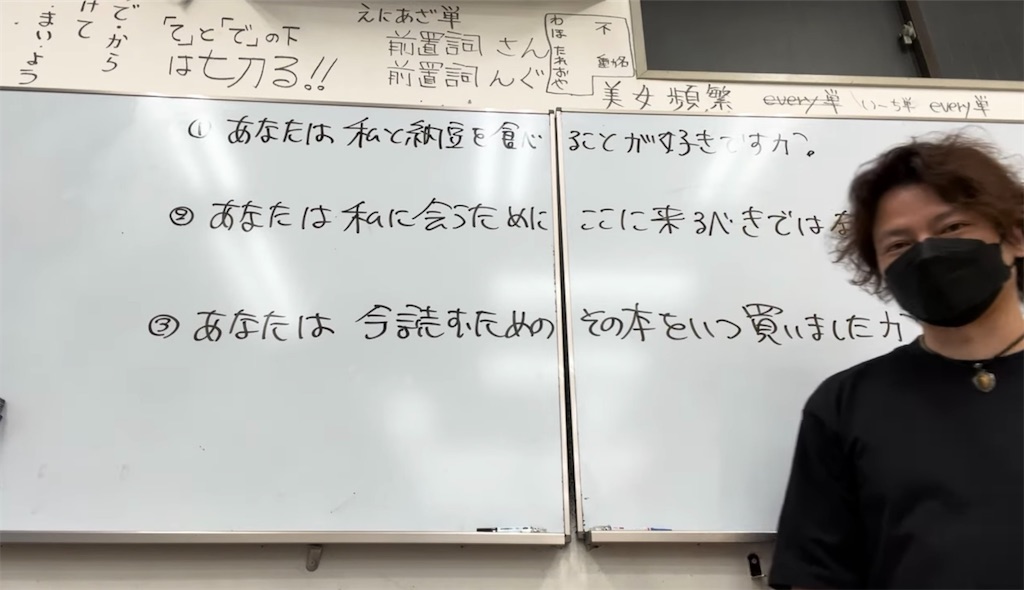 で・から
けて
・まい・よう
「て」と「で」の下
は七刀る!!
えにあざ単
前置詞 さん
前置詞 んぐ
わはたれおや
不
動名
美女頻繁 every単 い〜ち単 every単
① あなたは 私と納豆を食べることが好きですか。
② あなたは 私に会うために ここに来るべきではな
③ あなたは 今読むための その本をいつ買いましたか